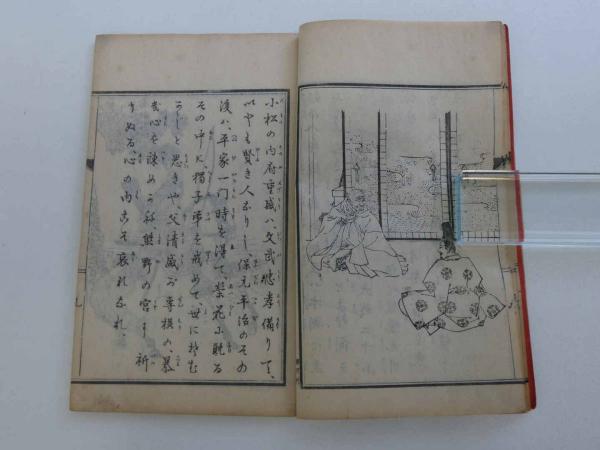 小松の内府重盛ハ、文武忠孝備りて、
いとも賢き人なりし、保元平治のその
後ハ、平家一門時を得て、栄花に耽る
その中に、獨子弟を戒めて、世にそむ
かしと思きや、父清盛が専横の、暴
心を諫めかね、熊野の宮に祈
りぬる、心の内こそ哀れなれ。